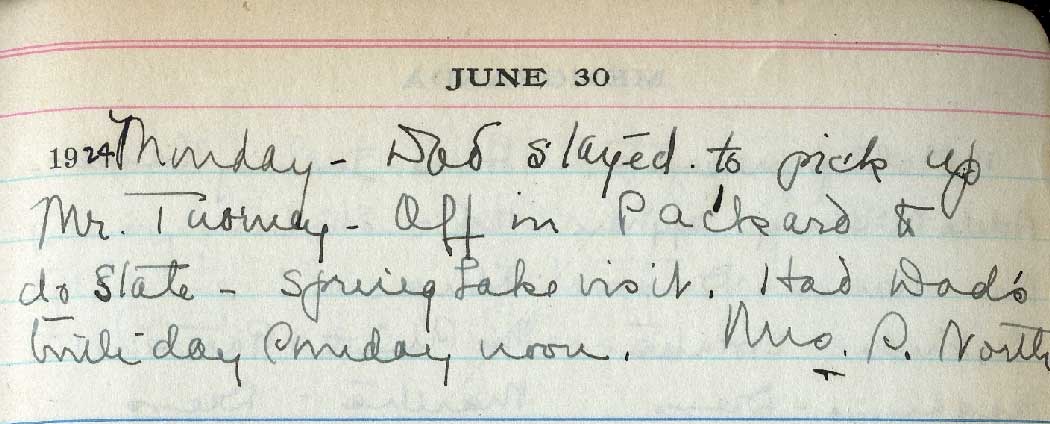 JUNE 30
1924 Monday - Dad stayed to pick up
Mr. Tuomey - Off in Packard to
do State - Spring Lake visit. Had Dad's
birthday Sunday noon. Mrs. P. North